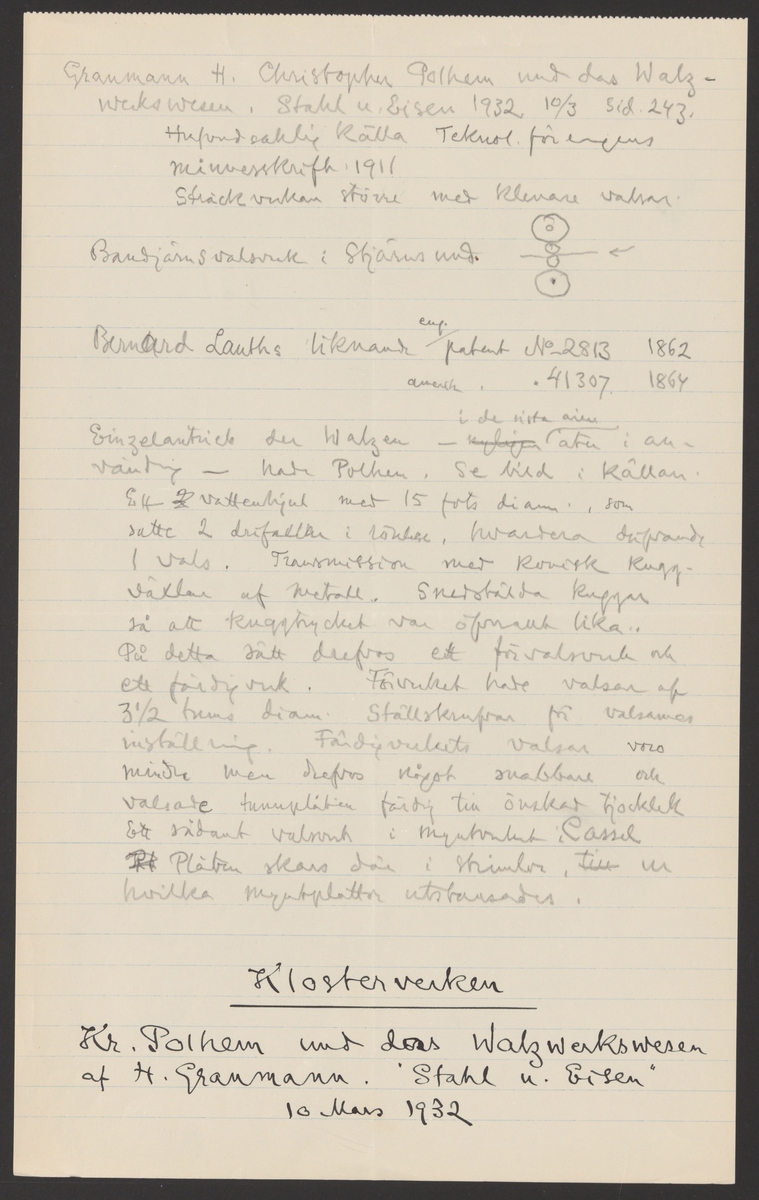 Graumann H. Christopher Polhem und das Walz-
werkswesen. Stahl u. Eisen 1932 10/3 sid. 243.
Hufvudsaklig källa Teknol. föreningens
minnesskrift 1911
Sträckverkan större med klenare valsar.
Bandjärnsvalsverk i Stjärnsund.
Bernard Lauths liknande eng. patent No 2813 1862
amerik. " 41307 1864
i de sista åren
Einzelantrieb der Walzen – nyligen åter i an-
vändig – hade Polhem. Se bild i källan.
Ett 2 vattenhjul med 15 fots diam., som
satte 2 drifaxlar i rörelse, hvardera drifvande
1 vals. Transmission med konisk kugg-
växlar af metall. Snedstälda kuggar
så att kuggtrycket var öfverallt lika..
På detta sätt drefvos ett förvalsverk och
ett färdigverk. Förverket hade valsar af
3 1/2 tums diam. Ställskrufvar för valsarnas
inställning. Färdigverkets valsar voro
mindre men drefvos något snabbare och
valsade tunnplåten färdig till önskad tjocklek
Ett sådant valsverk i myntverket i Cassel
Pl Plåten skars där i strimlor, till ur
hvilka myntplattor utstansades.
Klosterverken
Kr. Polhem und das Walzwerkswesen
af H. Graumann. "Stahl u. Eisen"
10 Mars 1932